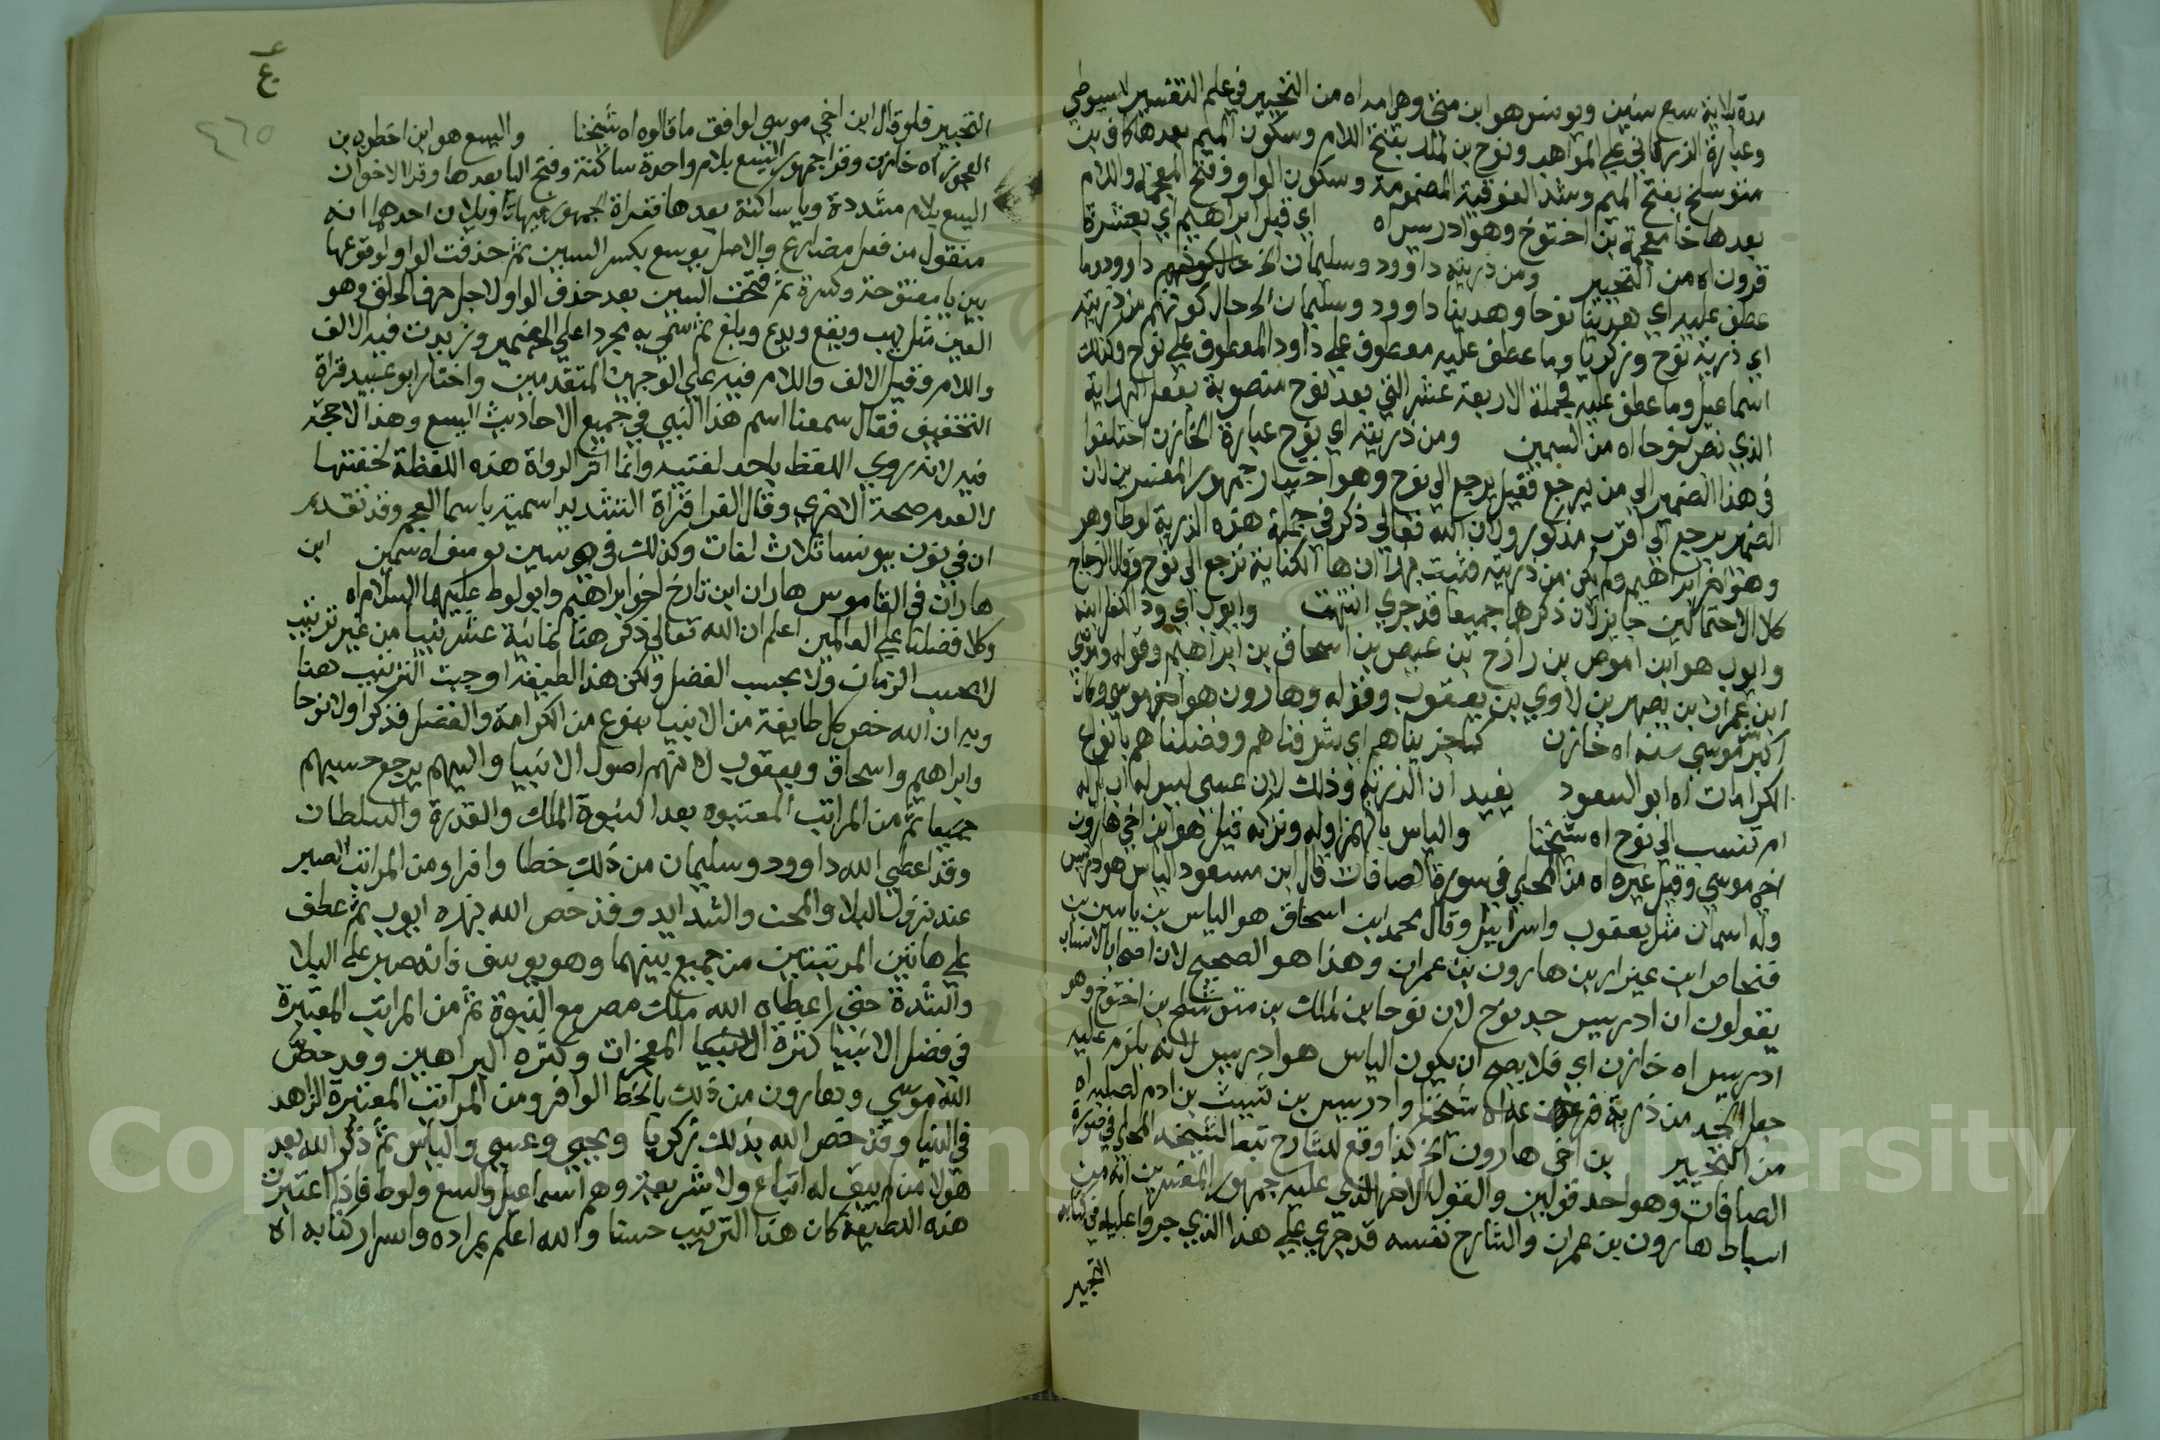 مدة بلائه سبع سنين ويونس هو ابن متى وهي امه اه من التحبير في علم التفسير للسيوطي
وعبارة الزرقاني على المواهب ونوح بن لمك بفتح اللام وسكون الميم بعدها كاف بن
متوسلخ بفتح الميم وشد الفوقية المضمومة وسكون الواو وفتح المعجمة واللام
بعدها خا معجمة بن اخنوخ وهو ادريس اه اي قبل ابراهيم اي بعشرة
قرون اه من التحبير ومن ذريته داوود وسليمان الخ داوود وما
عطف عليه اي هدينا نوحا وهدينا داوود وسليمان الخ حال كونهم من ذريته
اي ذرية نوح وزكريا وما عطف عليه معطوف على داود المعطوف على نوح وكذلك
اسماعيل وما عطف عليه فجملة الاربعة عشر التي بعد نوح منصوبة بفعل الهداية
الذي نصب نوحا اه من السمين ومن ذريته اي نوح عبارة الخازن اختلفوا
في هذا الضمير الى من يرجع فقيل يرجع الى نوح وهو اختيار جمهور المفسرين لان
الضمير يرجع الى اقرب مذكور ولان الله تعالى ذكر في جملة هذه الذرية لوطا وهو
وهو ابراهيم ولم يكن من ذريته فثبت بهذا ان ها الكناية ترجع الى نوح وقال الزجاج
كلا الاحتمالين جايز لان ذكرهما جميعا قد جرى انتهت وايوب
وايوب هو ابن اموص بن رازح بن عيص بن اسحاق بن ابراهيم وقوله وموسى
ابن عمران بن يصهر بن لاوي بن يعقوب وقوله وهارون هو اخو موسى وكان
اكبر من موسى سنة اه خازن كما جزيناهم اي شرفناهم وفضلناهم بانواع
الكرامات اه ابو السعود يفيد ان الذرية وذلك لان عيسى ليس له اب
ام تنسب الى نوح اه شيخنا والياس بالهمز اوله وتركه قيل هو ابن اخي هارون
اخي موسى وقيل غيره اه من المحلي في سورة الصافات قال ابن مسعود الياس هو ادريس
وله اسمان مثل يعقوب واسرائيل وقال محمد ابن اسحاق هو الياس بن ياسين بن
فنحاص ابن عيزار بن هارون بن عمران وهذا هو الصحيح لان اصحاب الانساب
يقولون ان ادريس جد نوح لان نوحا بن لمك بن متوشلخ بن اخنوخ وهو
ادريس اه خازن اي فلا يصح ان يكون الياس هو ادريس لانه يلزم عليه
جعل الجد من ذرية اه شيخنا وادريس بن شيث بن ادم لصلبه اه
من التحبير بن اخي هارون الخ كذا وقع للشارح تبعا لشيخه المحلي في سورة
الصافات وهو احد قولين والقول الاخر الذي عليه جمهور المفسرين انه من
اسباط هارون بن عمران والشارح نفسه قد جرى على هذا الذي جروا عليه في كتابه
التحبير
ع
٤٦٥
التحبير فلو قال ابن اخي موسى لوافق ما قالوه اه شيخنا واليسع هو ابن اخطوب بن
العجوز اه خازن وقرا جمهور اليسع بلام واحدة ساكنة وفتح اليا بعدها وقرا الاخوان
اليسع بلام مشددة ويا ساكنة بعدها فقراة الجمهور فيها تاويلان احدهما انه
منقول من فعل مضارع والاصل يوسع بكسر السين ثم حذفت الواو لوقوعها
بين يا مفتوحة وكسرة ثم فتحت السين بعد حذف الواو لاجل حرف الحلق وهو
العين مثل يهب ويقع ويدع ويلغ ثم سمي به مجردا عن الضمير وزيدت فيه الالف
واللام وقيل الالف واللام فيه على الوجهين المتقدمين واختار ابو عبيد قراة
التخفيف فقال سمعنا اسم هذا النبي في جميع الاحاديث اليسع وهذا لا حجة
فيه لانه روي اللفظ باحد لغتيه وانما اثر الرواة هذه اللفظة لخفتها
لا لعدم صحة الاخرى وقال الفرا قراة التشديد اسميه باسما العجم وقد تقدم
ان في نون يونسا ثلاث لغات وكذلك في سين يوسف اه سمين ابن
هاران في القاموس هاران ابن تارخ اخو ابراهيم وابو لوط عليهما السلام اه
وكلا فضلنا على العالمين اعلم ان الله تعالى ذكر هنا ثمانية عشر نبيا من غير ترتيب
لا بحسب الزمان ولا بحسب الفضل ولكن هذا لطيفة اوجبت الترتيب هنا
وهي ان الله خص كل طايفة من الانبيا بنوع من الكرامة والفضل فذكر اولا نوحا
وابراهيم واسحاق ويعقوب لانهم اصول الانبيا واليهم يرجع حسبهم
جميعا ثم من المراتب المعتبره بعد النبوة الملك والقدرة والسلطان
وقد اعطى الله داوود وسليمان من ذلك حظا وافرا ومن المراتب الصبر
عند نزول البلا والمحن والشدايد وقد خص الله بهذه ايوب ثم عطف
على هاتين المرتبتين من جمع بينهما وهو يوسف فانه صبر على البلا
والشدة حتى اعطاه الله ملك مصر مع النبوة ثم من المراتب المعتبرة
في فضل الانبيا كثرة المعجزات وكثرة البراهين وقد خص
الله موسى وهارون من ذلك بالحظ الوافر ومن المراتب المعتبرة الزهد
في الدنيا وقد خص الله بذلك زكريا ويحيى وعيسى والياس ثم ذكر الله بعد
هولا من لم يبق له اتباع ولا شريعة وهم اسماعيل واليسع ولوط فاذا اعتبرت
هذه اللطيفة كان هذا الترتيب حسنا والله اعلم بمراده واسرار كتابه اه